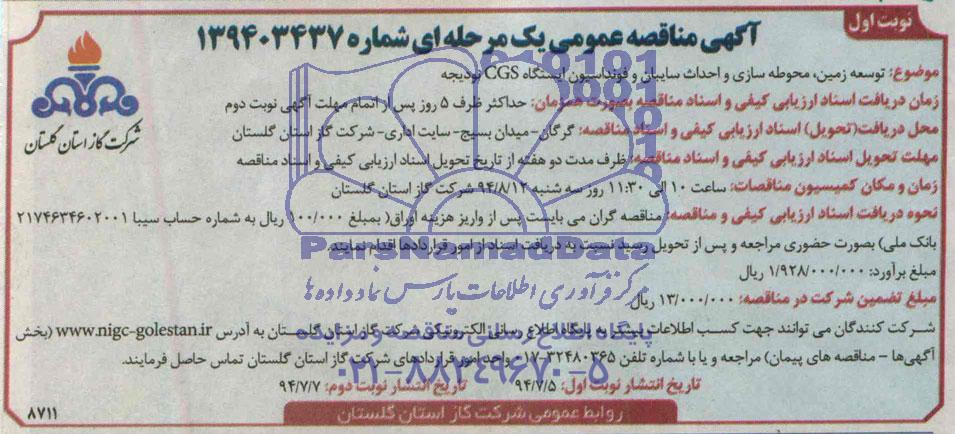 نوبت اول
آگهی مناقصه عمومی یک مرحله ای شماره ۱۳۹۴۰۳۴۳۷
شرکت گاز استان گلستان
موضوع: توسعه زمین، محوطه سازی و احداث سایبان و فونداسیون ایستگاه CGS نودیجه
زمان دریافت اسناد ارزیابی کیفی و اسناد مناقصه بصورت همزمان: حداکثر ظرف ۵ روز پس از اتمام مهلت آگهی نوبت دوم
محل دریافت(تحویل) اسناد ارزیابی کیفی و اسناد مناقصه: گرگان-میدان بسیج-سایت اداری-شرکت گاز استان گلستان
مهلت تحویل اسناد ارزیابی کیفی و اسناد مناقصه: ظرف مدت دو هفته از تاریخ تحویل اسناد ارزیابی کیفی و اسناد مناقصه
زمان و مکان کمیسیون مناقصات: ساعت ۱۰ الی ۱۱:۳۰ روز سه شنبه ۹۴/۸/۱۲ شرکت گاز استان گلستان
نحوه دریافت اسناد ارزیابی کیفی و مناقصه: مناقصه گران می بایست پس از واریز هزینه اوراق( بمبلغ ۱۰۰/۰۰۰ ریال به شماره حساب سیبا ۲۱۷۴۶۳۴۶۰۲۰۰۱
بانک ملی) بصورت حضوری مراجعه و پس از تحویل رسید نسبت به دریافت اسناد از امور قراردادها اقدام نمایند.
مبلغ برآورد: ۱/۹۲۸/۰۰۰/۰۰۰ ریال
مبلغ تضمین شرکت در مناقصه: ۱۳/۰۰۰/۰۰۰ ریال
شرکت کنندگان می توانند جهت کسب اطلاعات بیشتر به پایگاه اطلاع رسانی الکترونیکی شرکت گاز استان گلستان به آدرس www.nigc-golestan.ir (بخش
آگهی‌ها - مناقصه های پیمان) مراجعه و یا با شماره تلفن ۳۲۴۸۰۳۶۵-۰۱۷ واحد امور قراردادهای شرکت گاز استان گلستان تماس حاصل فرمایند.
تاریخ انتشار نوبت اول: ۹۴/۷/۵ تاریخ انتشار نوبت دوم: ۹۴/۷/۷
روابط عمومی شرکت گاز استان گلستان
۸۷۱۱
ParsNamadData
مرکز فرآوری اطلاعات پارس نماد داده ها
پایگاه اطلاع رسانی مناقصه و مزایده
۰۲۱-۸۸۳۴۹۶۷۰-۵